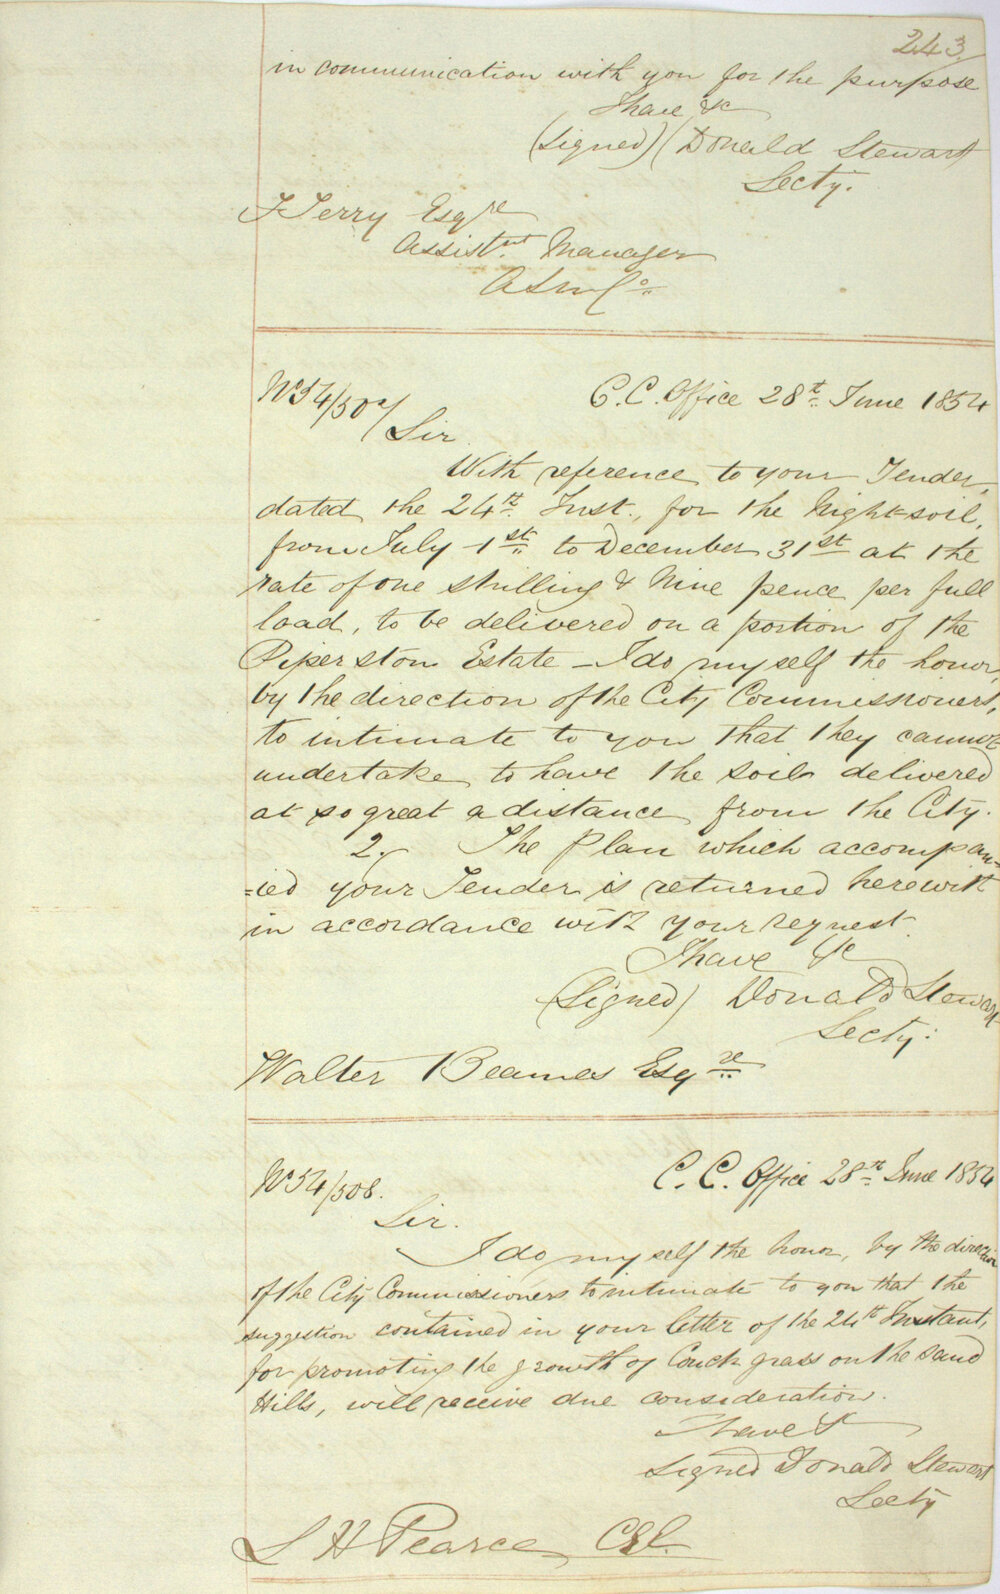 243
in communication with you for the purpose
I have &c
(Signed) (Donald Stewart
Secty.
T Terry Esqre
Assistnt. Manager
No 54/507/
C. C. Office 28th June 1854
Sir
With reference to your Tender,
dated the 24th Inst., for the Night-soil,
from July 1st to December 31st at the
rate of one shilling & Nine pence per full
load, to be delivered on a portion of the
Piperston Estate – I do myself the honor,
by the direction of the City Commissioners,
to intimate to you that they cannot
undertake to have the soil delivered
at so great a distance from the City.
2. The Plan which accompan-
=ied your Tender is returned herewith
in accordance with your request.
I have &c
(Signed) Donald Stewart
Secty:
Walter Beames Esqre
No 54/508.
C. C. Office 28th June 1854
Sir.
I do myself the honor, by the direction
of the City Commissioners to intimate to you that the
suggestion contained in your letter of the 24th Instant,
for promoting the growth of Couch grass on the Sand
Hills, will receive due consideration.
I have &c
Signed Donald Stewart
Secty